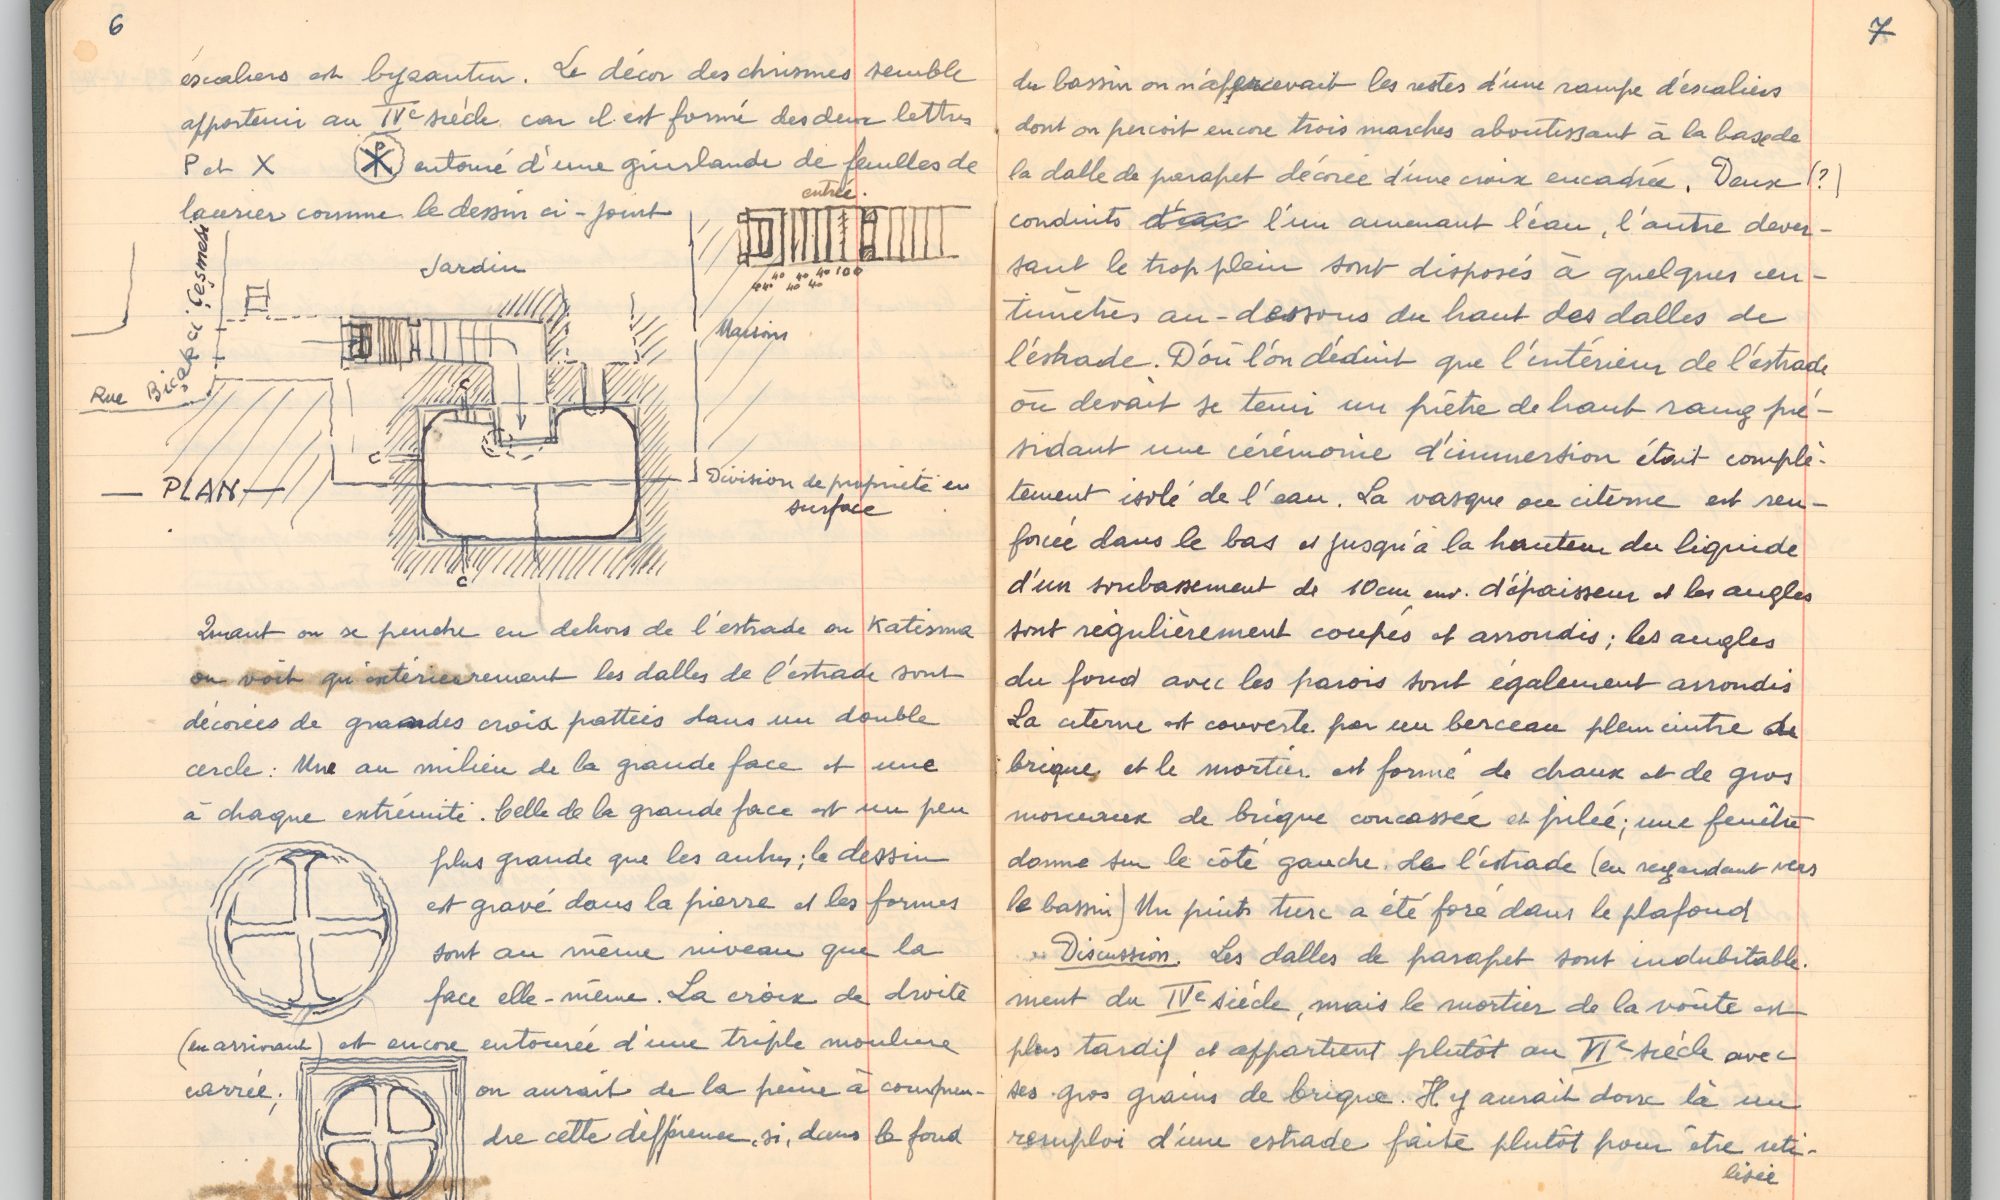 6
escaliers est byzantin. Le décor des chrismes semble
appartenir au IVe siècle car il est formé des deux lettres
P et X entouré d'une guirlande de feuilles de
laurier comme le dessin ci-joint
entrée.
40 40 40 100
40 40 40
Jardin
Rue Bıçakcı Çeşmesi
Maisons
C
C
PLAN
Division de propriété en
surface
C
Quant on se penche en dehors de l'estrade ou Katisma
on voit qu'extérieurement les dalles de l'estrade sont
décorées de grandes croix pattées dans un double
cercle: Une au milieu de la grande face et une
à chaque extrémité. Celle de la grande face est un peu
plus grande que les autres; le dessin
est gravé dans la pierre et les formes
sont au même niveau que la
face elle-même. La croix de droite
(en arrivant) est encore entourée d'une triple moulure
carrée; on aurait de la peine à compren-
dre cette différence, si, dans le fond
7
du bassin on n'apercevait les restes d'une rampe d'escaliers
dont on perçoit encore trois marches aboutissant à la base de
la dalle de parapet décorée d'une croix encadrée. Deux (?)
conduits d'eau l'un amenant l'eau, l'autre dever-
sant le trop plein sont disposés à quelques cen-
timètres au-dessous du haut des dalles de
l'estrade. D'où l'on déduit que l'intérieur de l'estrade
où devait se tenir un prêtre de haut rang pré-
sidant une cérémonie d'immersion était complè-
tement isolé de l'eau. La vasque ou citerne est ren-
forcée dans le bas et jusqu'à la hauteur du liquide
d'un soubassement de 10cm env. d'épaisseur et les angles
sont régulièrement coupés et arrondis; les angles
du fond avec les parois sont également arrondis
La citerne est couverte par un berceau plein cintre de
brique, et le mortier est formé de chaux et de gros
morceaux de brique concassée et pilée; une fenêtre
donne sur le côté gauche de l'estrade (en regardant vers
le bassin) Un puits turc a été foré dans le plafond
Discussion. Les dalles de parapet sont indubitable-
ment du IVe siècle, mais le mortier de la voûte est
plus tardif et appartient plutôt au VIe siècle avec
ses gros grains de brique. Il y aurait donc là un
remploi d'une estrade faite plutôt pour être uti-
lisée